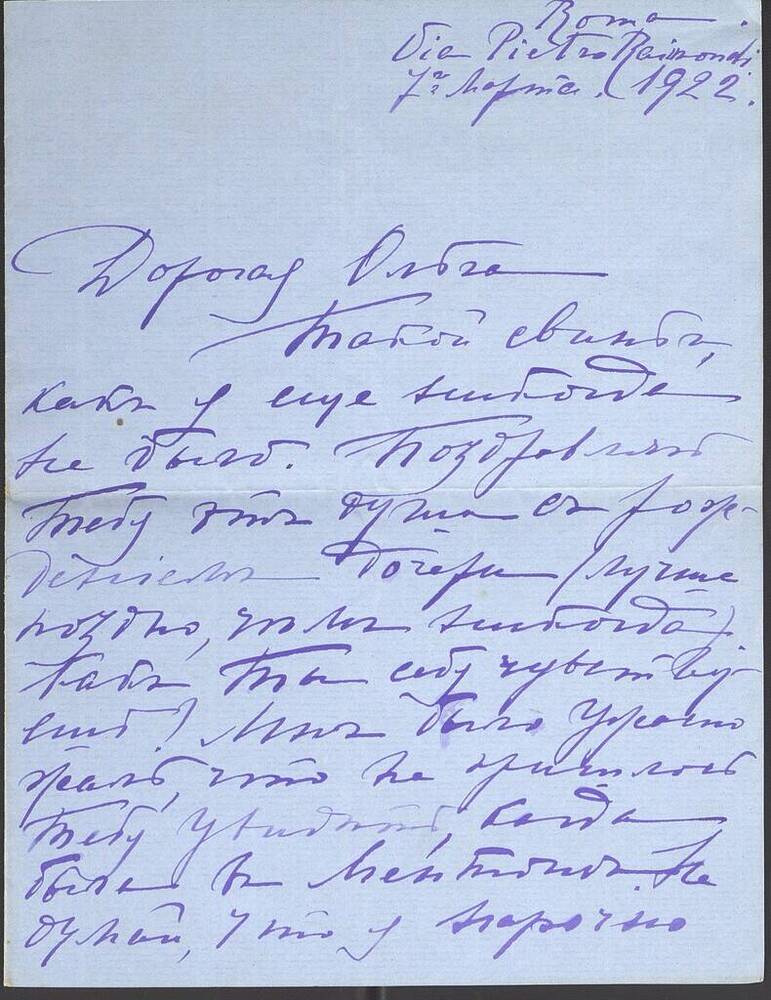 Roma.
Via Pietro Raimondi
7го Марта. 1922.
Дорогая Ольга
Такой свиньи,
какъ я еще никогда
не было. Поздравляю
Тебя отъ души съ рож-
денiемъ дочери (лучше
поздно, чѣмъ никогда)
Какъ Ты себя чувству-
ешь? Мнѣ было ужасно
жаль, что не пришлось
Тебя увидѣть, когда
была въ Ментонѣ. Не
думай, что я нарочно